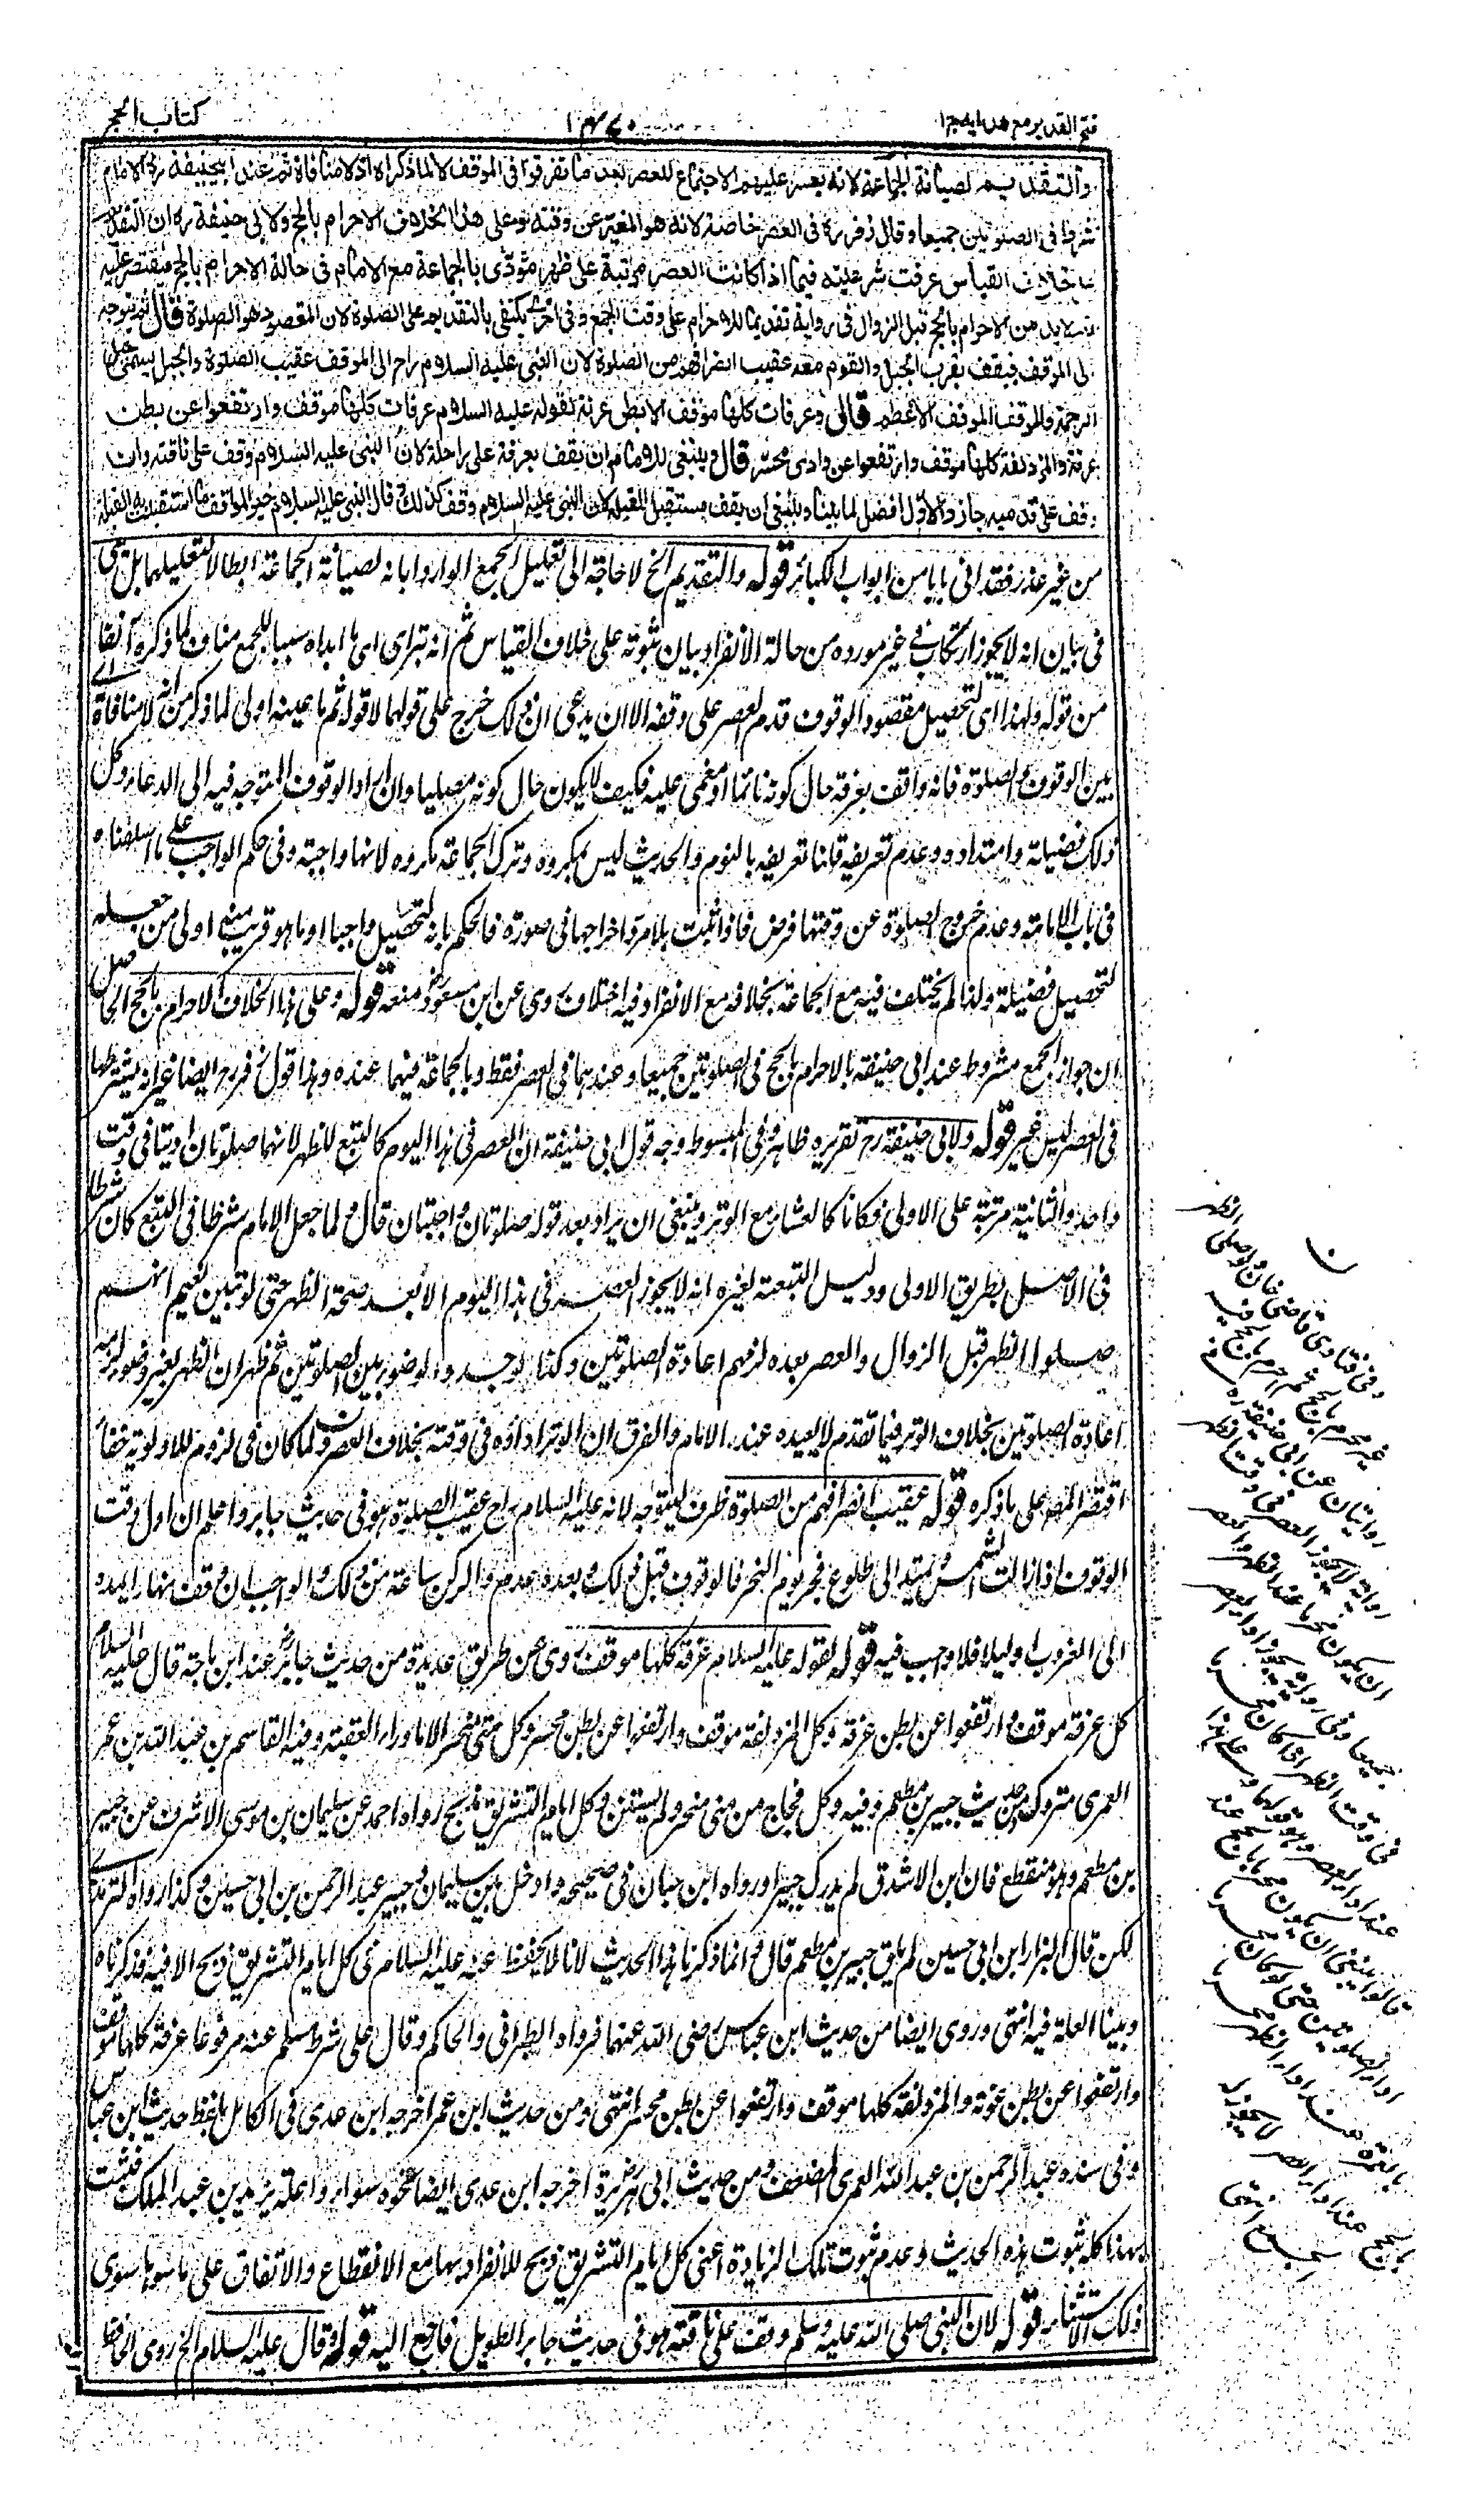 فتح القدير مع هدايه ج ١
كتاب الحج
والتقديم لصيانة الجماعة لانه يعسر عليهم الاجتماع للعصر بعد ما تفرقوا في الموقف لا لما ذكراه اذ لا منافاة ثم عند ابي حنيفة ره الامام
شرط في الصلوتين جميعا وقال زفر ره في العصر خاصة لانه هو المغير عن وقته وعلى هذا الخلاف الاحرام بالحج ولابي حنيفة ره ان التقديم
على خلاف القياس عرفت شرعيته فيما اذا كانت العصر مرتبة على ظهر مؤدى بالجماعة مع الامام في حالة الاحرام بالحج فيقتصر عليه
ثم لابد من الاحرام بالحج قبل الزوال في رواية تقديما للاحرام على وقت الجمع وفي اخرى يكتفى بالتقديم على الصلوة لان المقصود هو الصلوة قال ثم يتوجه
الى الموقف فيقف بقرب الجبل والقوم معه عقيب انصرافهم من الصلوة لان النبي عليه السلام راح الى الموقف عقيب الصلوة والجبل يسمى جبل
الرحمة والموقف الموقف الاعظم قال وعرفات كلها موقف الا بطن عرنة لقوله عليه السلام عرفات كلها موقف وارتفعوا عن بطن
عرنة والمزدلفة كلها موقف وارتفعوا عن وادى محسر قال وينبغي للامام ان يقف بعرفة على راحلة لان النبي عليه السلام وقف على ناقته وان
وقف على قدميه جاز والاول افضل لما بينا وينبغي ان يقف مستقبل القبلة لان النبي عليه السلام وقف كذلك وقال النبي عليه السلام خير المواقف ما استقبلت به القبلة
من غير عذر فقد اتى بابا من ابواب الكبائر قوله والتقديم الخ لا حاجة الى تعليل الجمع الوارد بانه لصيانة الجماعة ابطالا لتعليلهما بل
في بيان انه لا يجوز ارتكابه في غير مورده من حالة الانفراد بيان ثبوته على خلاف القياس ثم انه تراى اى ما ابداه سببا للجمع مناف لما ذكره آنفا
من قوله ولهذا اى لتحصيل مقصود الوقوف قدم العصر على وقفه الا ان يدعى ان ذلك خرج على قولهما لا قوله ثم ما عينه اولى لما ذكر من انه لا منافاة
بين الوقوف والصلوة فانه واقف بعرفة حال كونه نائما او مغمى عليه فكيف لا يكون حال كونه مصليا وان اراد الوقوف المتوجه فيه الى الدعاء وكل
ذلك فضيلة وامتداده وعدم تعريفه فاننا تعريفه بالنوم والحديث ليس بمكروه وترك الجماعة مكروه لانها واجبة وفي حكم الواجب على ما اسلفناه
في باب الامامة وعدم خروج الصلوة عن وقتها فرض فاذا ثبت بلا مرد اخراجها في صورة فالحكم بانه لتحصيل واجب او ما هو قريب منه اولى من جعله
لتحصيل فضيلة ولذا لم يختلف فيه مع الجماعة بخلافه مع الانفراد فيه اختلاف روى عن ابن مسعود رض منعه قوله وعلى هذا الخلاف الاحرام بالحج الحاصل
ان جواز الجمع مشروط عند ابي حنيفة بالاحرام بالحج في الصلوتين جميعا وعندهما في العصر فقط وبالجماعة فيهما عنده وهذا قول زفر رح ايضا غير انه يشترطها
في العصر ليس غير قوله ولابي حنيفة رح تقريره ظاهر وفي المبسوط وجه قول ابي حنيفة ان العصر في هذا اليوم كالتبع للظهر لانهما صلوتان اديتا في وقت
واحد والثانية مرتبة على الاولى فكانا كالعشاء مع الوتر وينبغي ان يزاد بعد قوله صلوتان واجبتان قال ولما جعل الامام شرطا في التبع كان شرطا
في الاصل بطريق الاولى ودليل التبعية لغيره انه لا يجوز العصر في هذا اليوم الا بعد صحة الظهر حتى لو تبين لغيم انهم
صلوا الظهر قبل الزوال والعصر بعده لزمهم اعادة الصلوتين وكذا لو جدد الوضوء بين الصلوتين ثم ظهر ان الظهر بغير وضوء لزمه
اعادة الصلوتين بخلاف الوتر فيما تقدم لا يعيده عند الامام والفرق ان الوتر اداؤه في وقته بخلاف العصر ولما كان في لزوم الاولوية خفاء
اقتصر المص على ما ذكره قوله عقيب انصرافهم من الصلوة ظرف ليتوجه لانه عليه السلام راح عقيب الصلوة هو في حديث جابر واعلم ان اول وقت
الوقوف اذا زالت الشمس ويمتد الى طلوع فجر يوم النحر فالوقوف قبل ذلك وبعده عدم والركن ساعة من ذلك والواجب ان وقف نهارا يمده
الى الغروب او ليلا فلا واجب فيه قوله لقوله عليه السلام عرفة كلها موقف روى من طرق عديدة من حديث جابر رض عند ابن ماجة قال عليه السلام
كل عرفة موقف وارتفعوا عن بطن عرنة وكل المزدلفة موقف وارتفعوا عن بطن محسر وكل منى منحر الا ما وراء العقبة وفيه القاسم بن عبد الله بن عمر
العمرى متروك ومن حديث جبير بن مطعم وفيه وكل فجاج من منى منحر ولم يستثن وكل ايام التشريق ذبح رواه احمد عن سليمان بن موسى الاشدق عن جبير
بن مطعم وهو منقطع فان ابن الاشدق لم يدرك جبيرا ورواه ابن حبان في صحيحه وادخل بين سليمان وجبير عبد الرحمن بن ابي حسين وكذا رواه
لكن قال البزار ابن ابي حسين لم يلق جبير بن مطعم قال وانما ذكرنا هذا الحديث لانا لا نحفظ عنه عليه السلام في كل ايام التشريق ذبح الا فيه فذكرناه
وبينا العلة فيه انتهى وروى ايضا من حديث ابن عباس رضى الله عنهما فرواه الطبرانى والحاكم وقال على شرط مسلم عنه مرفوعا عرفة كلها موقف
وارتفعوا عن بطن عرنة والمزدلفة كلها موقف وارتفعوا عن بطن محسر انتهى ومن حديث ابن عمر اخرجه ابن عدى في الكامل بلفظ حديث ابن عباس
وفي سنده عبد الرحمن بن عبد الله العمرى المضعف ومن حديث ابي هريرة اخرجه ابن عدى ايضا نحوه سواء واعله بيزيد بن عبد الملك فثبت
بهذا كله ثبوت هذا الحديث وعدم ثبوت تلك الزيادة اعنى كل ايام التشريق ذبح للانفراد بها مع الانقطاع والاتفاق على ما سواها سوى
ذلك الاستثناء قوله لان النبي صلى الله عليه وسلم وقف على ناقته هو في حديث جابر الطويل فارجع اليه قوله وقال عليه السلام الخ روى الحافظ
ن
وفي فتاوى قاضى خان ولو صلى الظهر
غير محرم بالحج ثم احرم بالحج فيه
روايتان عن ابي حنيفة ره في
رواية لا يجوز العصر في وقت الظهر
الا ان يكون محرما عند الظهر والعصر
جميعا وفي رواية يجوز اداء العصر
في وقت الظهر اذا كان محرما
عند اداء العصر وهو قولهما وعلى هذا
قالوا ينبغي ان يكون محرما بالحج عند
اداء الصلوتين حتى لو كان محرما
بالعمرة عند اداء الظهر محرما
بالحج عند اداء العصر لا يجوز له
الجمع انتهى